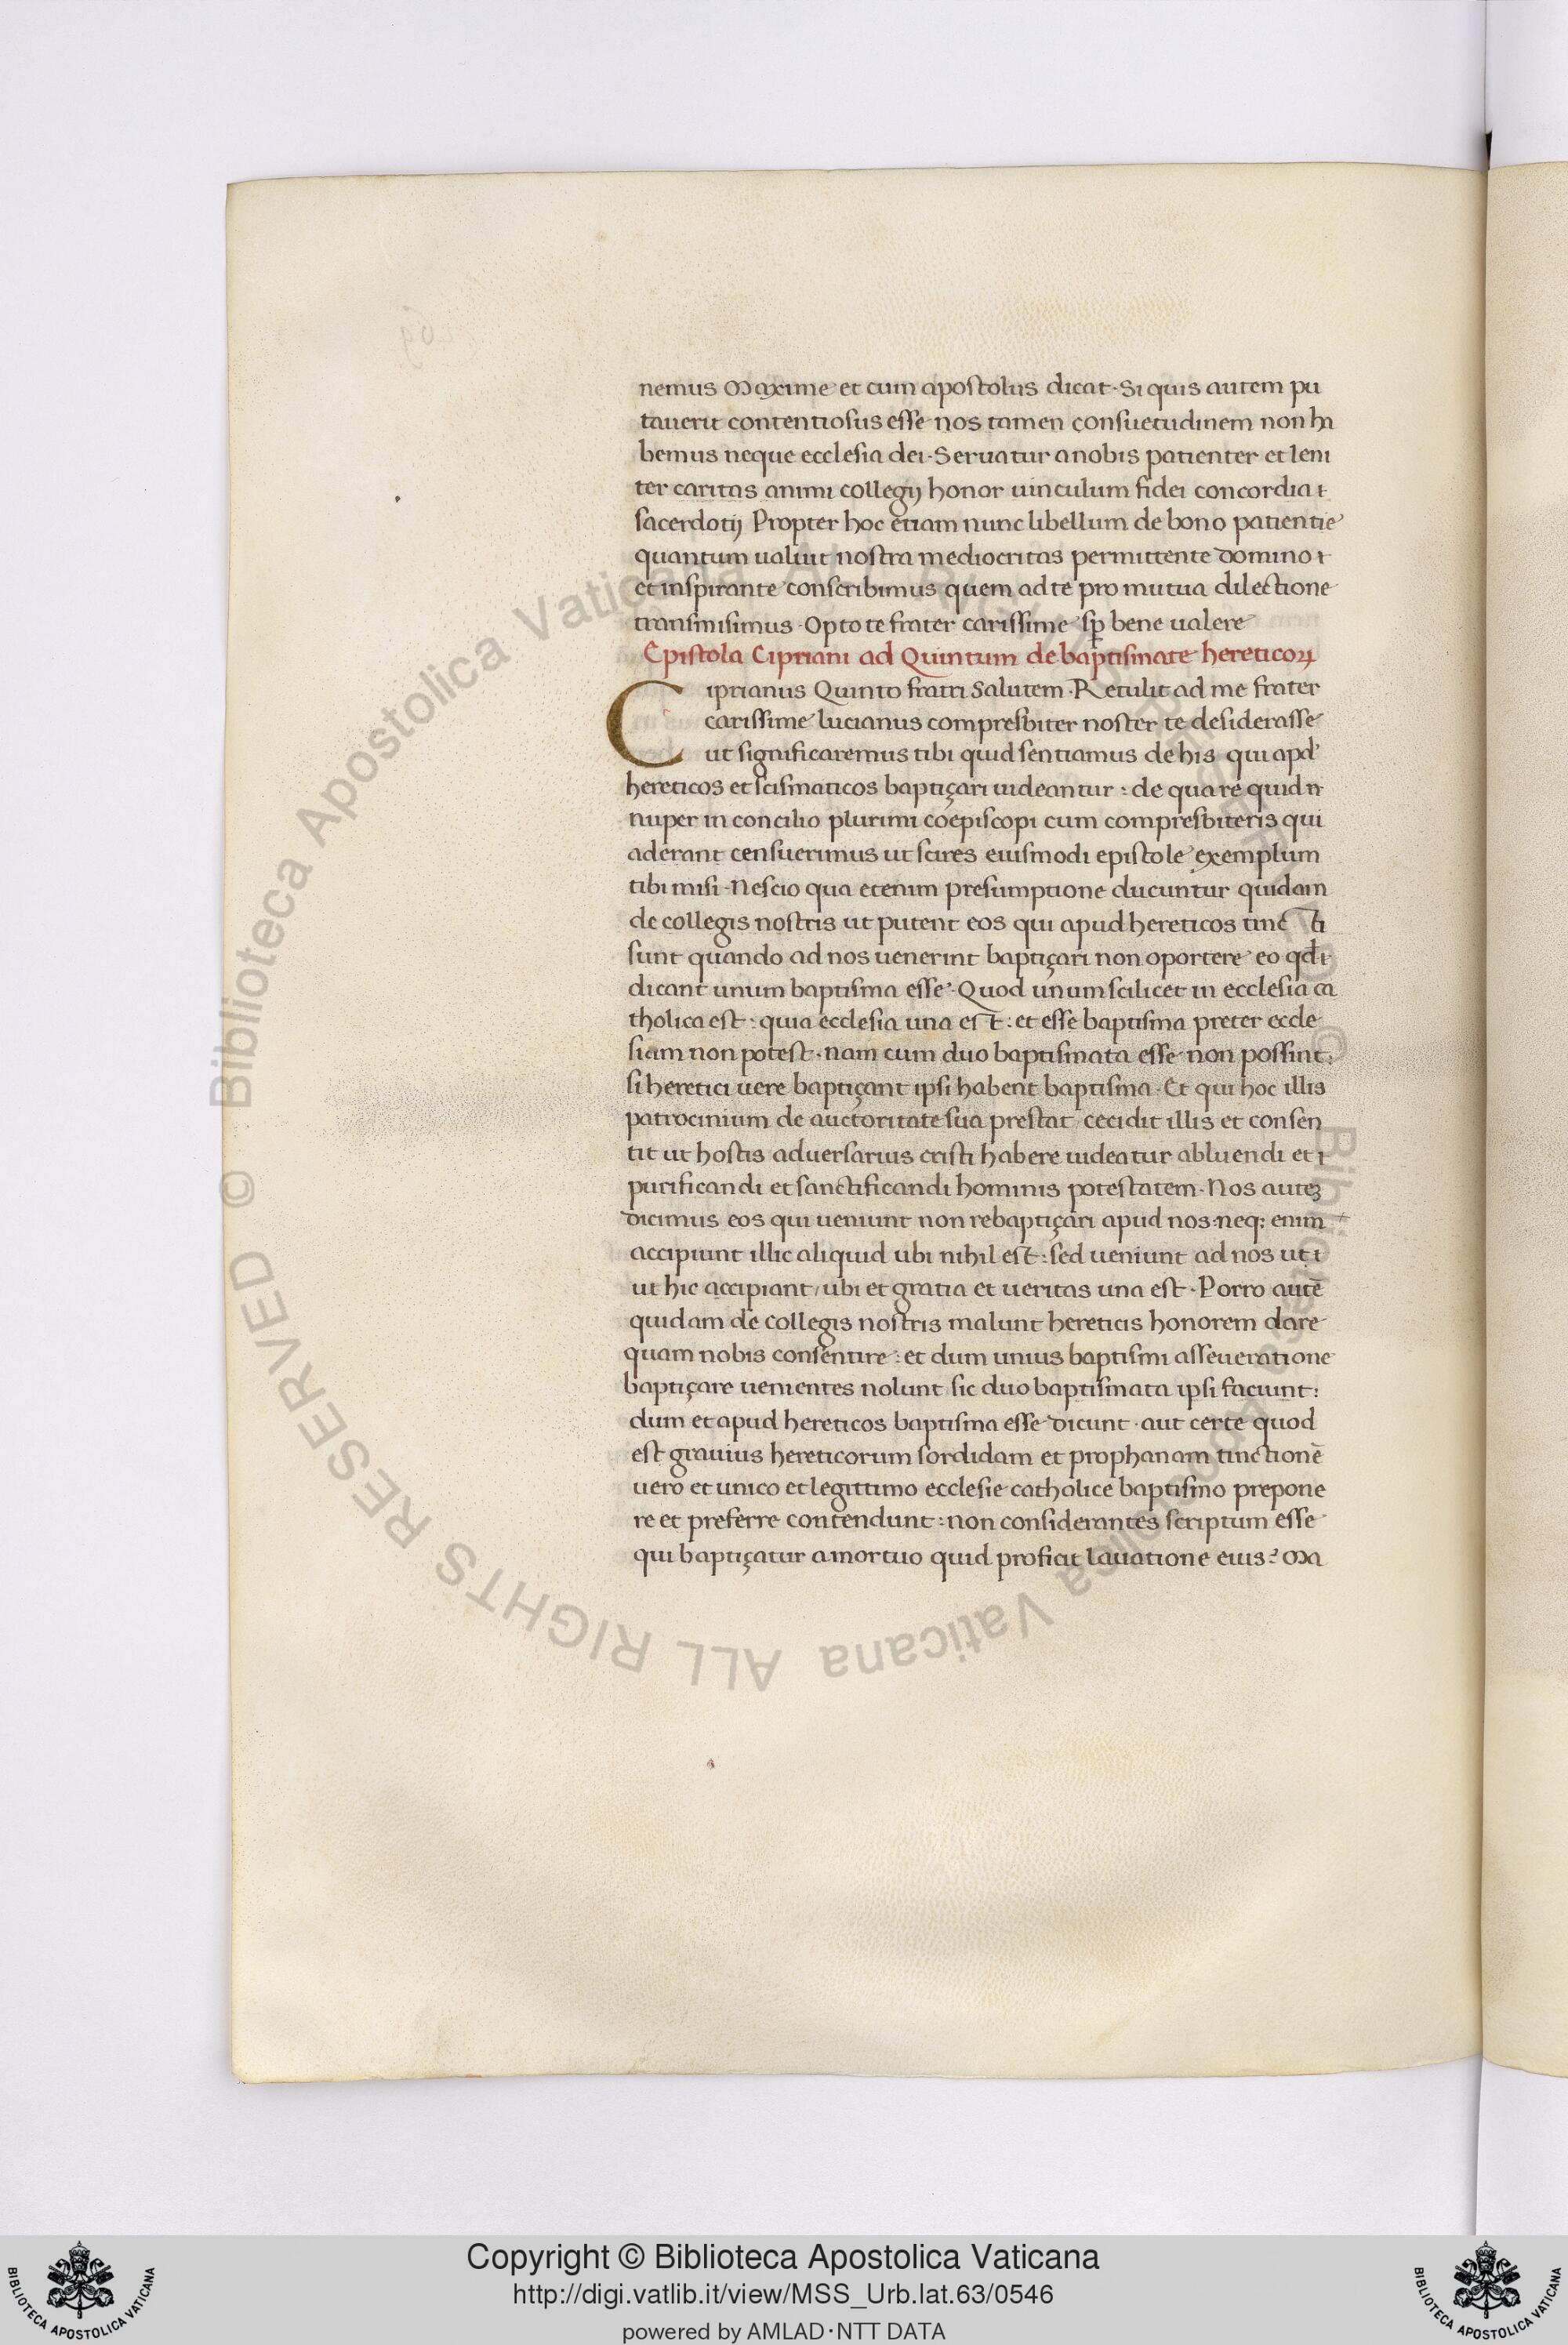 nemus Maxime et cum apostolus dicat · Si quis autem pu
tauerit contentiosus esse nos tamen consuetudinem non ha
bemus neque ecclesia dei · Seruatur a nobis patienter et leni
ter caritas animi collegij honor uinculum fidei concordia
sacerdotij Propter hoc etiam nunc libellum de bono patientie
quantum ualuit nostra mediocritas permittente domino
et inspirante conscribimus quem ad te pro mutua dilectione
transmisimus · Opto te frater carissime sp̱ bene ualere
Epistola Cipriani ad Quintum de baptismate hereticoꝝ
Ciprianus Quinto fratri Salutem · Retulit ad me frater
carissime lucianus compresbiter noster te desiderasse
ut significaremus tibi quid sentiamus de his qui apd'
hereticos et scismaticos baptiçari uideantur : de qua re quid
nuper in concilio plurimi coepiscopi cum compresbiteris qui
aderant censuerimus ut scires eiusmodi epistole exemplum
tibi misi · Nescio qua etenim presumptione ducuntur quidam
de collegis nostris ut putent eos qui apud hereticos tincti
sunt quando ad nos uenerint baptiçari non oportere eo qđ
dicant unum baptisma esse · Quod unum scilicet in ecclesia ca
tholica est : quia ecclesia una est : et esse baptisma preter eccle
siam non potest · nam cum duo baptismata esse non possint :
si heretici uere baptiçant ipsi habent baptisma · Et qui hoc illis
patrocinium de auctoritate sua prestat / cecidit illis et consen
tit ut hostis aduersarius cristi habere uideatur abluendi et
purificandi et sanctificandi hominis potestatem · Nos auteʒ
dicimus eos qui ueniunt non rebaptiçari apud nos : neqꝫ enim
accipiunt illic aliquid ubi nihil est : sed ueniunt ad nos ut
ut hic accipiant / ubi et gratia et ueritas una est · Porro autē
quidam de collegis nostris malunt hereticis honorem dare
quam nobis consentire : et dum unius baptismi asseueratione
baptiçare uenientes nolunt sic duo baptismata ipsi faciunt :
dum et apud hereticos baptisma esse dicunt · aut certe quod
est grauius hereticorum sordidam et prophanam tinctionē
uero et unico et legittimo ecclesie catholice baptismo prepone
re et preferre contendunt : non considerantes scriptum esse
qui baptiçatur a mortuo quid proficit lauatione eius ? Ma
© Biblioteca Apostolica Vaticana ALL RIGHTS RESERVED © Biblioteca Apostolica Vaticana ALL RIGHTS RESERVED
Copyright © Biblioteca Apostolica Vaticana
http://digi.vatlib.it/view/MSS_Urb.lat.63/0546
powered by AMLAD·NTT DATA
BIBLIOTECA APOSTOLICA VATICANA
BIBLIOTECA APOSTOLICA VATICANA